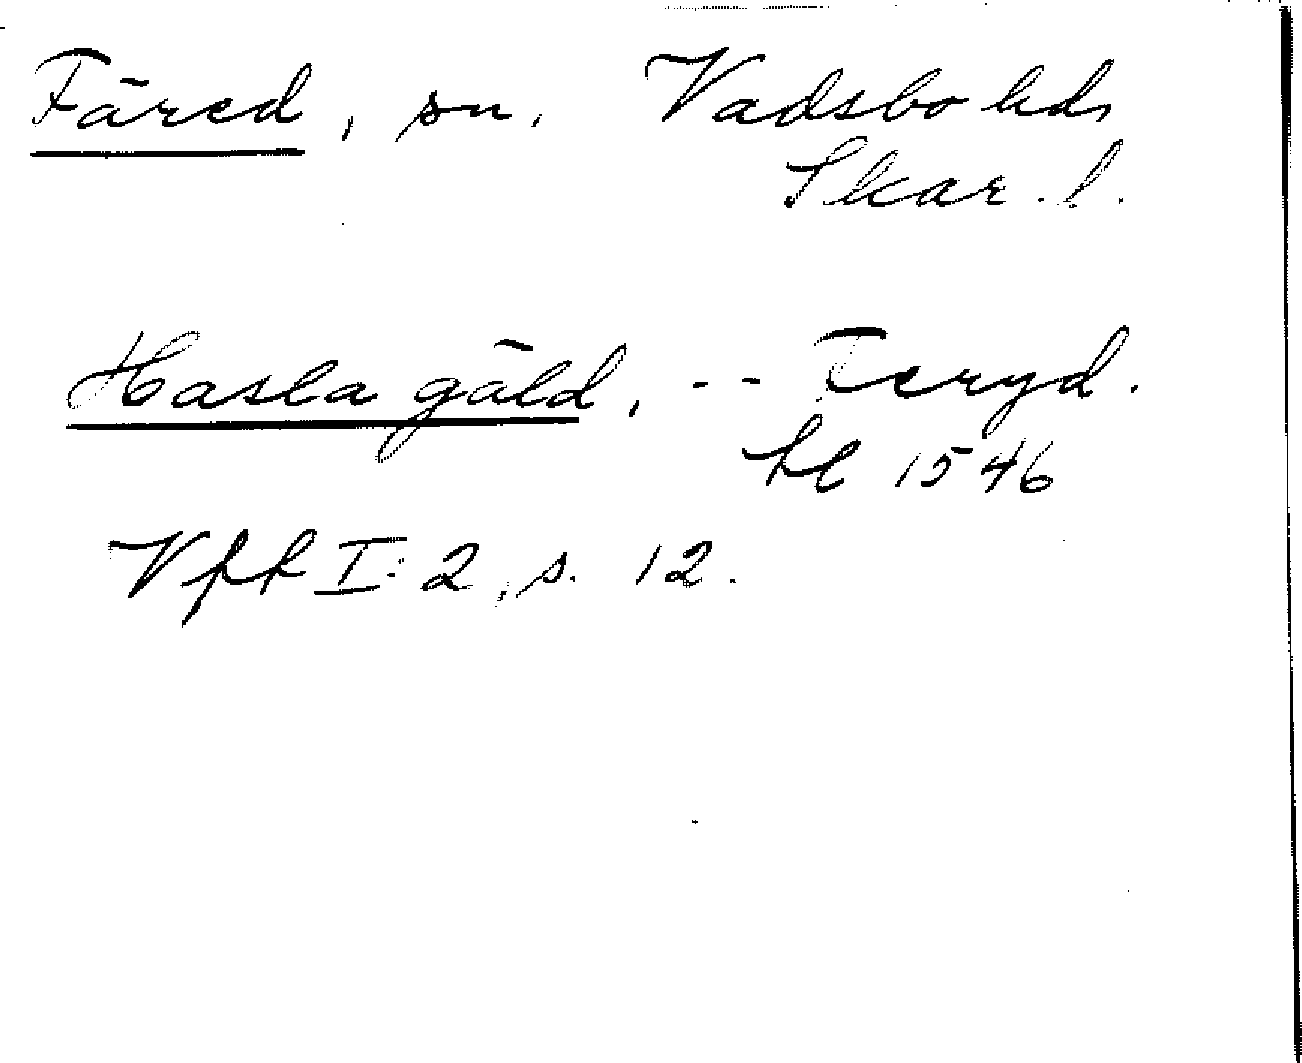 Färed, sn. Vadsbo hd,
Skar. l.
Hasla gäld, -- Feryd.
hl 1546
Vff I: 2, s. 12.